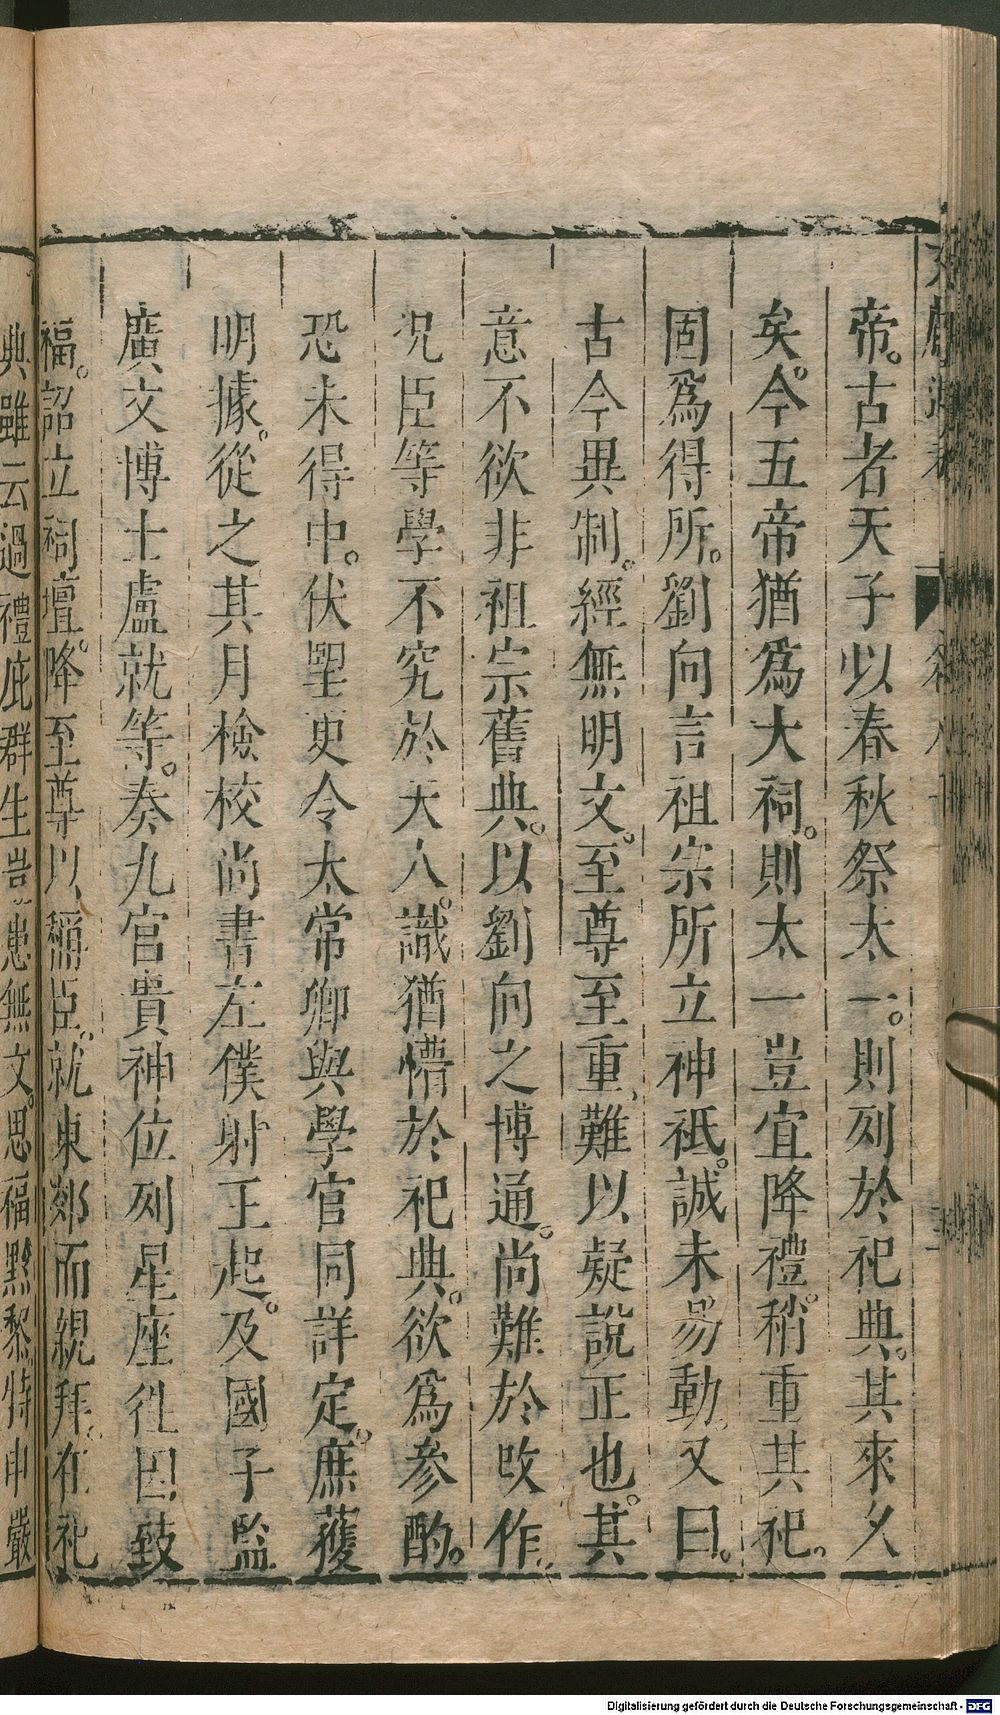 帝。古者天子以春秋祭太一。則列於祀典。其來久
矣。今五帝猶爲大祠。則太一豈宜降禮。稍重其祀。
固爲得所。劉向言祖宗所立神祇。誠未易動。又曰。
古今異制。經無明文。至尊至重、難以疑說正也。其
意不欲非祖宗舊典。以劉向之博通。尚難於改作。
況臣等學不究於天人。識猶懵於祀典。欲爲參酌。
恐未得中。伏聖更令太常卿與學官同詳定。庶獲
明據。從之其月檢校尚書左僕射王起。及國子監
廣文博士盧就等。奏九宮貴神位列星座徃因致
福。詔立祠壇。降至尊以稱臣。就東郊而親拜。在祀
典雖云過禮庇群生豈患無文。思福黔黎特申嚴
Digitalisierung gefördert durch die Deutsche Forschungsgemeinschaft - DFG